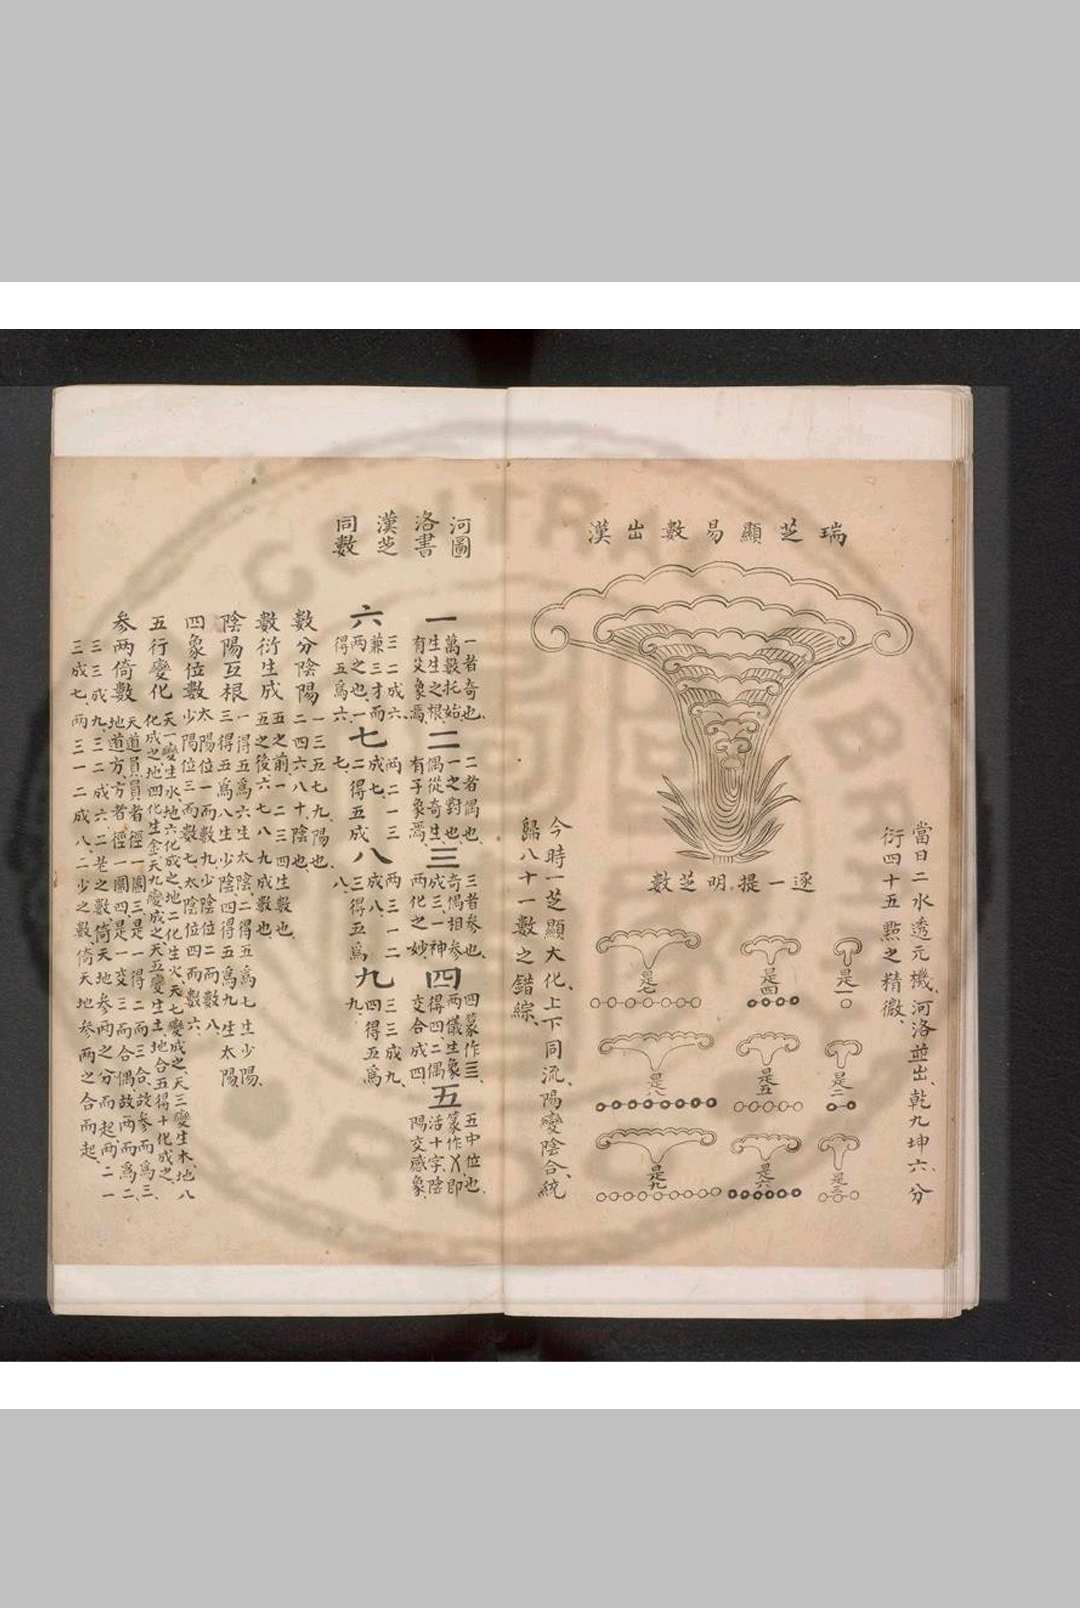 瑞芝顯易數出漢
當日二水透元機、河洛並出、乾九坤六、分
衍四十五點之精微、
逐一提明芝數
是一
是二
是三
是四
是五
是六
是七
是八
是九
今時一芝顯大化、上下同流、陽變陰合、統
歸八十一數之錯綜、
河圖
洛書
漢芝
同數
一
一者奇也、
萬數托始
生生之根、
有爻象焉、
二
二者偶也、
一之對也、
偶從奇生、
有子象焉、
三
三者參也、
奇偶相參
成三、一神
兩化之妙、
四
四篆作亖、
兩儀生象
得四、二偶
交合成四、
五
五中位也、
篆作乂、即
活十字、陰
陽交感象、
六
三二成六、
兼三才而
兩之也、一
得五爲六、
七
兩二一三
成七、
二得五成
七、
八
兩三一二
成八、
三得五爲
八、
九
三三成九、
四得五爲
九、
數分陰陽
一三五七九、陽也、
二四六八十陰也、
數衍生成
五之前、一二三四生數也、
五之後六七八九成數也、
陰陽互根
一得五爲六生太陰二得五爲七生少陽、
三得五爲八生少陰四得五爲九生太陽
四象位數
太陽位一而數九少陰位二而數八、
少陽位三而數七、太陰位四而數六、
五行變化
天一變生水、地六化成之、地二化生火、天七變成之、天三變生木、地八
化成之、地四化生金、天九變成之、天五變生土、地合五得十化成之、
參兩倚數
天道員、員者徑一圍三、是一得二而三合、故參而爲三、
地道方、方者徑一圍四、是一交三而合偶、故兩而爲二、
三三成九、三二成六、二老之數、倚天地參兩之分而起、兩二一
三成七、兩三一二成八、二少之數、倚天地參兩之合而起、